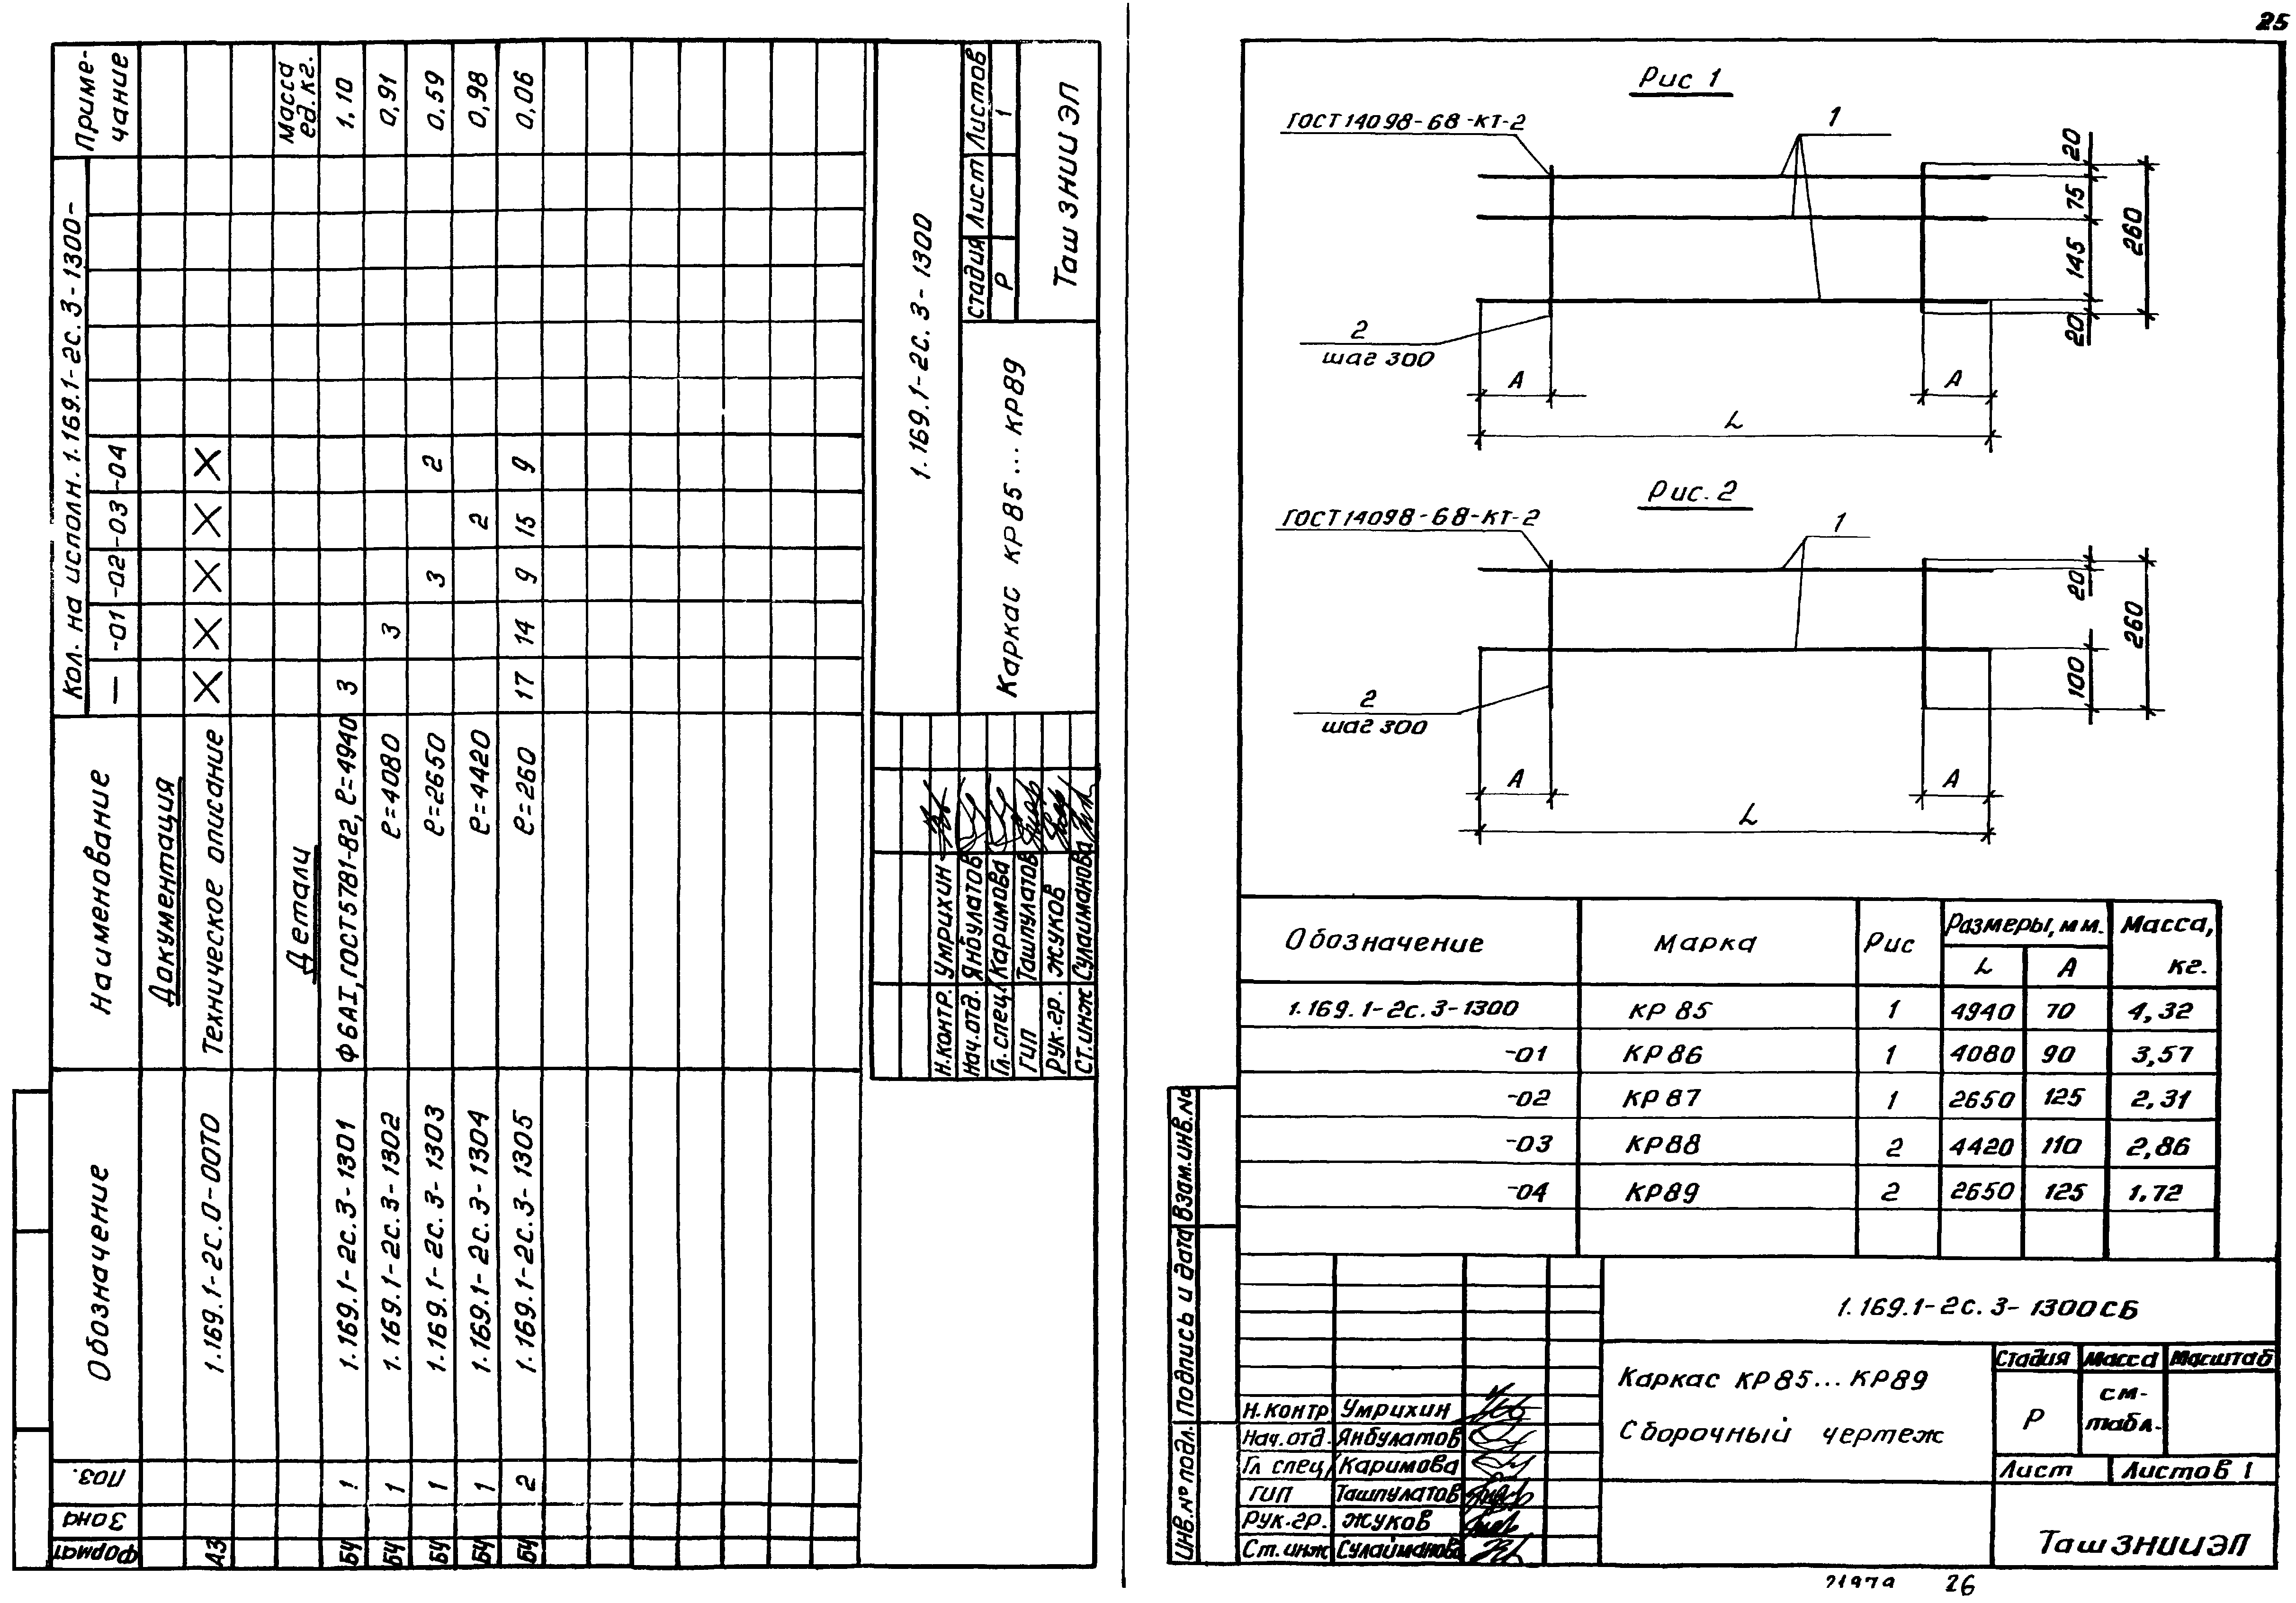 Формат
Зона
Поз.
Обозначение
Наименование
Кол. на исполн. 1.169.1-2с.3-1300-
— -01 -02 -03 -04
Приме-
чание
Документация
А3 1.169.1-2с.0-00ТО Техническое описание X X X X X
Детали
Масса
ед.кг.
БЧ 1 1.169.1-2с.3-1301 Ф6АI, ГОСТ5781-82, ℓ=4940 3 1,10
БЧ 1 1.169.1-2с.3-1302 ℓ=4080 3 0,91
БЧ 1 1.169.1-2с.3-1303 ℓ=2650 3 2 0,59
БЧ 1 1.169.1-2с.3-1304 ℓ=4420 2 0,98
БЧ 2 1.169.1-2с.3-1305 ℓ=260 17 14 9 15 9 0,06
1.169.1-2с.3-1300
Н.контр. Умрихин
Нач.отд. Янбулатов
Гл.спец. Каримова
ГИП Ташпулатов
Рук.гр. Жуков
Ст.инж Сулайманова
Каркас КР85...КР89
Стадия Лист Листов
Р 1
ТашЗНИИЭП
25
Рис 1
ГОСТ14098-68-КТ-2
1
20
75
145
20
260
2
шаг 300
А
А
L
Рис. 2
ГОСТ14098-68-КТ-2
1
20
100
260
2
шаг 300
А
А
L
Обозначение Марка Рис Размеры, мм. Масса,
кг.
L А
1.169.1-2с.3-1300 КР 85 1 4940 70 4,32
-01 КР 86 1 4080 90 3,57
-02 КР 87 1 2650 125 2,31
-03 КР88 2 4420 110 2,86
-04 КР89 2 2650 125 1.72
Взам.инв.№
Подпись и дата
Инв.№ подл.
1.169.1-2с.3-1300СБ
Каркас КР85...КР89
Сборочный чертеж
Стадия Масса Масштаб
Р
см.
табл.
Лист Листов 1
Н.контр Умрихин
Нач.отд. Янбулатов
Гл спец. Каримова
ГИП Ташпулатов
Рук.гр. Жуков
Ст.инж Сулайманова
ТашЗНИИЭП
21979 26